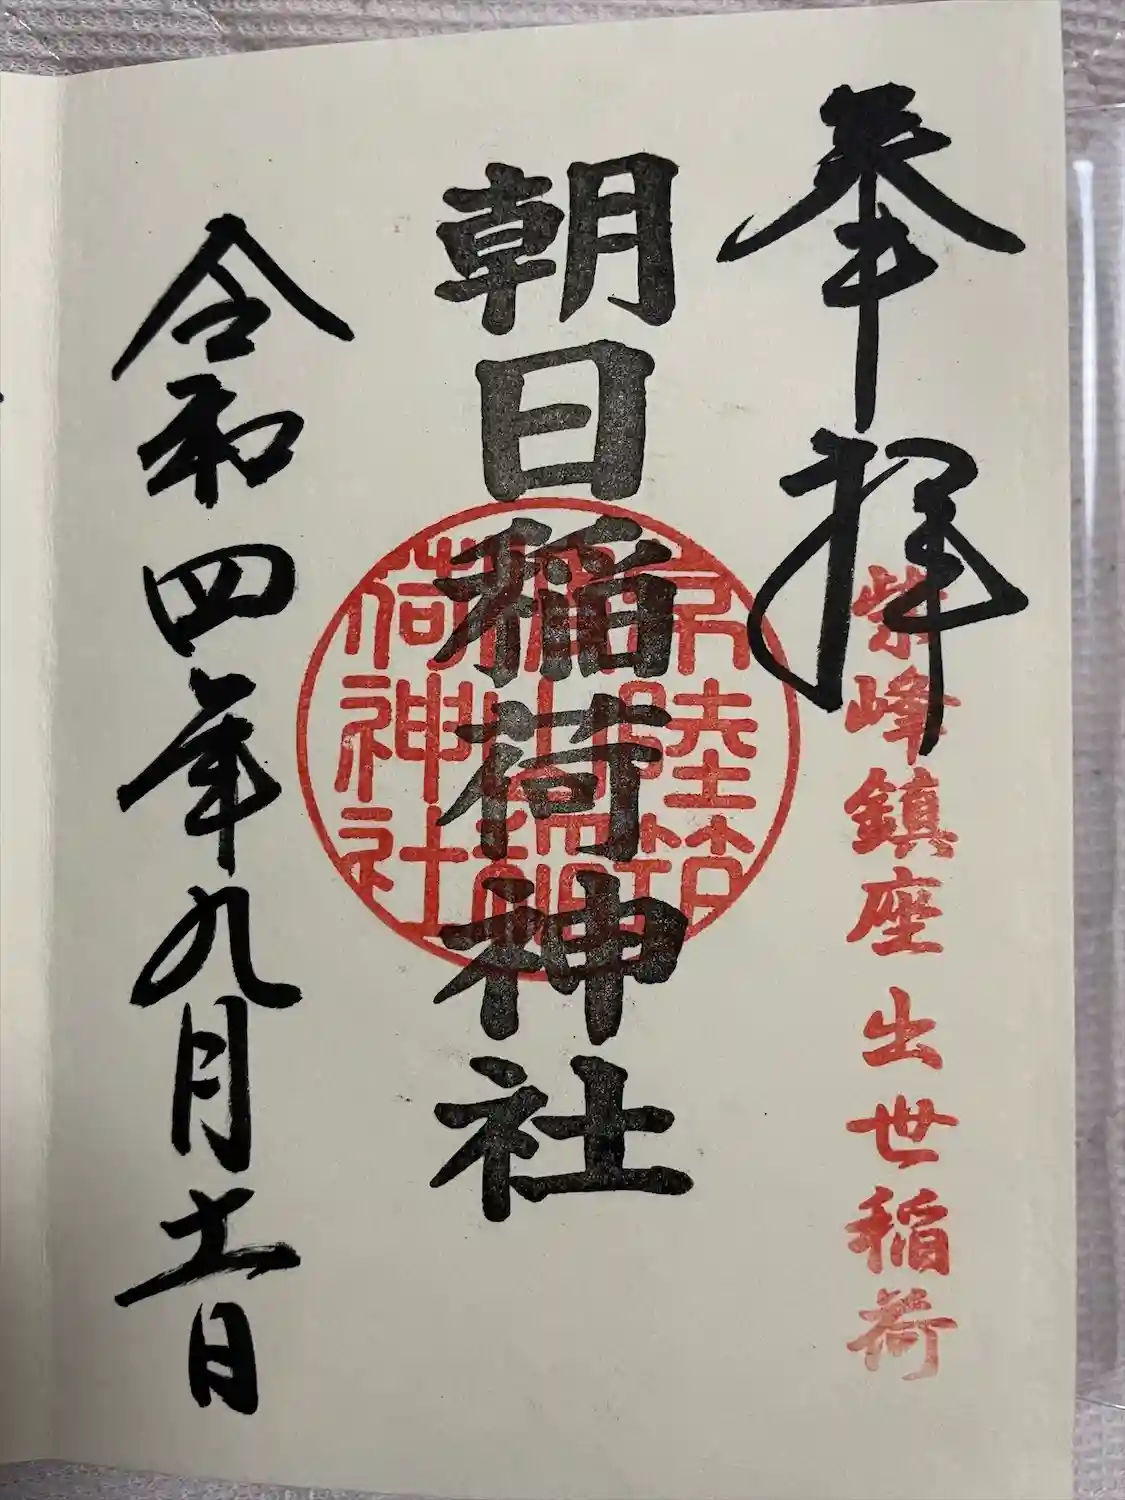 奉拝
紫峰鎮座 出世稲荷
朝日稲荷神社
常陸筑
山
荷神社
令和四年九月十一日